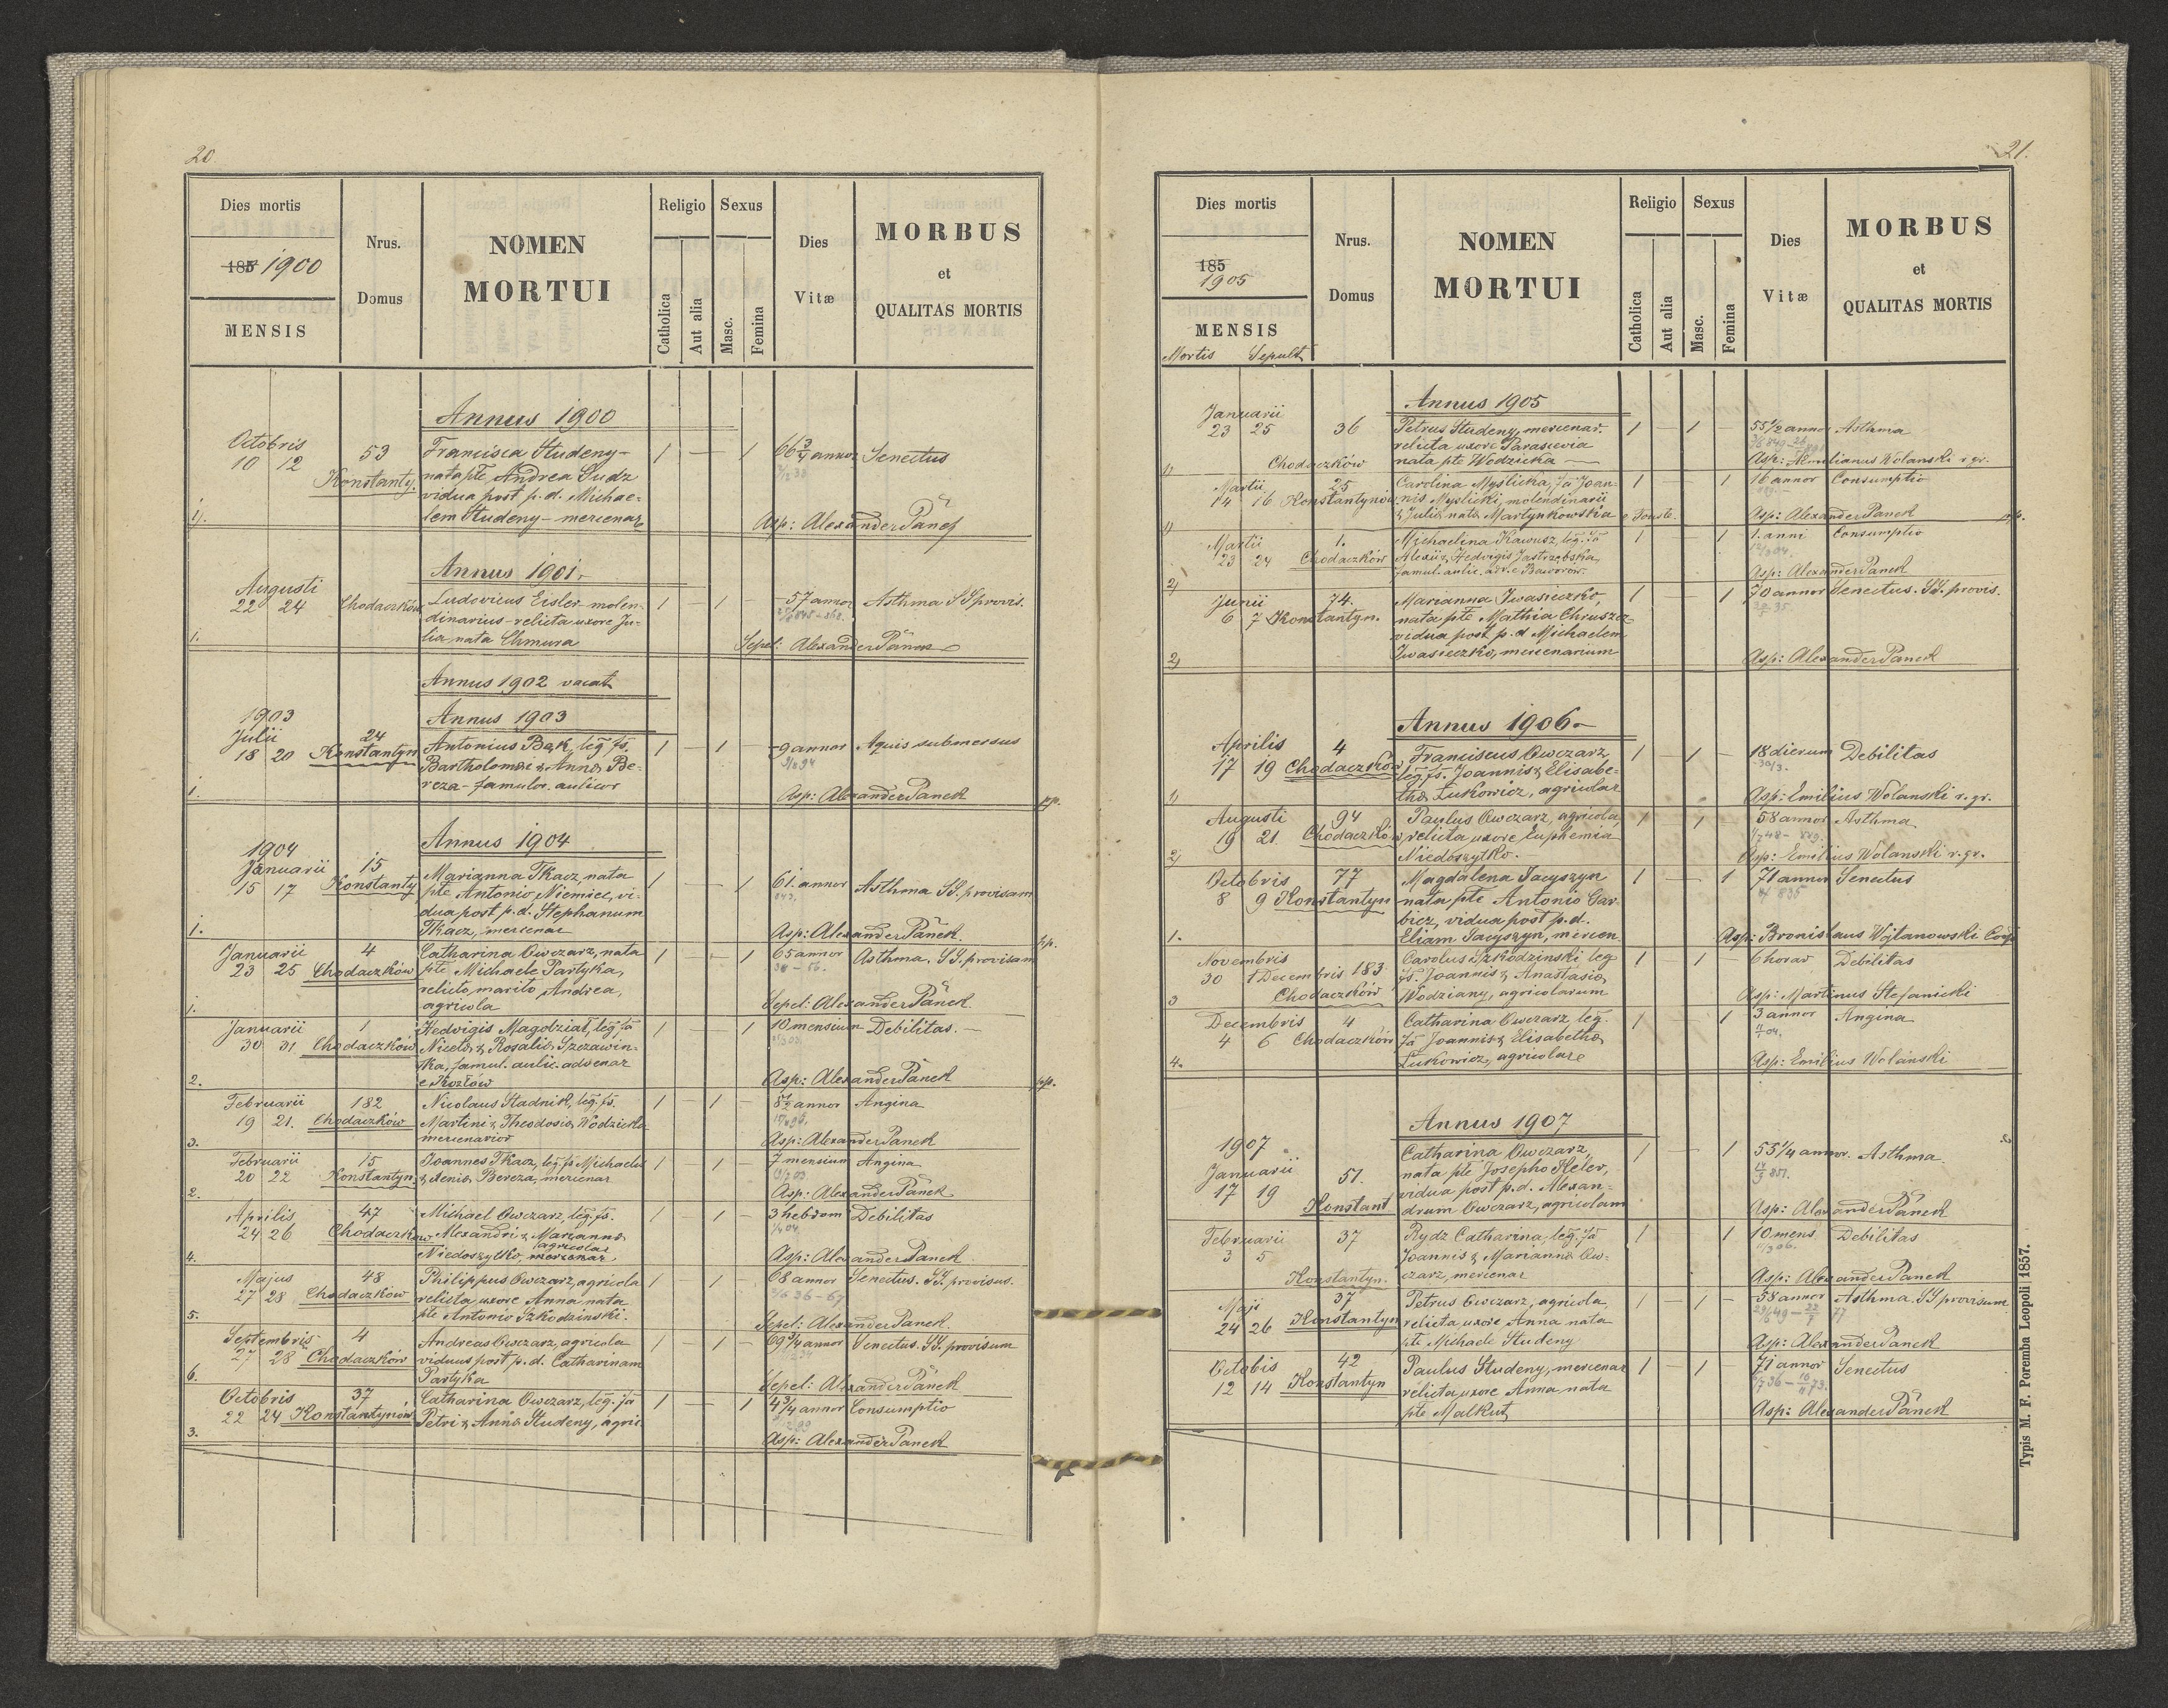 20.
Dies mortis
185 1900
MENSIS
Nrus.
Domus
NOMEN
MORTUI
Religio
Catholica
Aut alia
Sexus
Masc.
Femina
Dies
Vitæ
MORBUS
et
QUALITAS MORTIS
Annus 1900
Octobris
10 12
53
Konstanty.
Francisca Studeny-
nata pte Andrea Gudz
vidua post p. d. Michae-
lem Studeny - mercenar.
1 — 1
66 3/4 annor.
Senectus
1).
Asp: Alexander Panek
Annus 1901.
Augusti
22 24
Chodaczków
Ludovicus Eisler molen-
dinarius - relicta uxore Ju-
lia nata Chmura
1 — 1 —
57 annor
Asthma SS provis.
1.
Sepel: Alexander Panek
Annus 1902 vacat
1903
Annus 1903
Julii
18 20
24
Konstantyn
Antonius Bąk, leg. fs.
Bartholomæi & Annæ Be-
reza - famulor. aulicor
1 — 1 —
9 annor
Aquis submersus
1.
Asp: Alexander Panek
pp.
1904
Annus 1904
Januarii
15 17
15
Konstanty
Marianna Tkacz, nata
pte Antonio Niemiec, vi-
dua post p. d. Stephanum
Tkacz, mercenar
1 — 1
61. annor
Asthma SS. provisam
1.
Asp: Alexander Panek.
pp.
Januarii
23 25
4
Chodaczków
Catharina Owczarz, nata
pte Michaele Partyka,
relicto marito Andrea,
agricola
1 — 1
65 annor
Asthma. SS. provisam
1.
Sepel: Alexander Panek
Januarii
30 31
1
Chodaczków
Hedvigis Magdziak, leg. fa
Nicetæ & Rosaliæ Szczawin-
ska, famul. aulic. advenar
e Kozłów
1 — 1
10 mensium
Debilitas. —
2.
Asp: Alexander Panek
pp.
Februarii
19 21.
182
Chodaczków
Nicolaus Stadnik, leg. fs.
Martini & Theodosiæ Wodzicka
mercenarior
1 — 1 —
8 1/2 annor
Angina
3.
Asp: Alexander Panek
Februarii
20 22
15
Konstantyn
Joannes Tkacz, leg. fs Michaelis
& Xeniæ Bereza, mercenar
1 — 1 —
7 mensium
Angina
2.
Asp: Alexander Panek
Aprilis
24 26
47
Chodaczków
Michael Owczarz, leg. fs.
Alexandri & Mariannæ
Niedoszytko, mercenar
agricolar
1 — 1 —
3 hebdom
Debilitas
4.
Asp: Alexander Panek.
Majus
27 28
48
Chodaczków
Philippus Owczarz, agricola
relicta uxore Anna nata
pte Antonio Szkodzinski.
1 — 1 —
68 annor
Senectus. SS. provisus.
5.
Sepel: Alexander Panek.
Septembris
27 28
4
Chodaczków
Andreas Owczarz, agricola
viduus post p. d. Catharinam
Partyka
1 — 1 —
69 3/4 annor
Senectus. SS. provisum
6.
Sepel: Alexander Panek
Octobris
22 24
37
Konstantynów
Catharina Owczarz, leg. fa
Petri & Annæ Studeny, agric
1 — 1
4 3/4 annor
Consumptio
3.
Asp: Alexander Panek
21.
Dies mortis
185
1905
MENSIS
Mortis Sepult
Nrus.
Domus
NOMEN
MORTUI
Religio
Catholica
Aut alia
Sexus
Masc.
Femina
Dies
Vitæ
MORBUS
et
QUALITAS MORTIS
Annus 1905
Januarii
23 25
36
Chodaczków
Petrus Studeny, mercenar.
relicta uxore Parascevia
nata pte Wodzicka —
1 — 1 —
55 1/2 annor
Asthma
1)
Asp: Aemilianus Wolanski r. gr.
Martii
14 16
25
Konstantynów
Carolina Myślicka, fa Joan-
nis Myślicki, molendinarii
& Juliæ natæ Martynkowska e Touste.
1 — 1
16 annor
Consumptio
1)
Asp: Alexander Panek
pp.
Martii
23 24
1.
Chodaczków
Michaelina Kawusz, leg. fa
Alexii & Hedvigis Jastrzębska,
famul. aulic. adv. e Baworów.
1 — 1
1. anni
Consumptio
2)
Asp: Alexander Panek
Junii
6 7
74.
Konstantyn.
Marianna Iwasieczko,
nata pte Mathia Chruszcz
vidua post p. d Michaelem
Iwasieczko, mercenarium
1 — 1
70 annor
Senectus. SS. provis.
2)
Asp: Alexander Panek
Annus 1906
Aprilis
17 19
4
Chodaczków
Franciscus Owczarz
leg. fs. Joannis & Elisabe-
thæ Łukowicz, agricolar
1 — 1 —
18 dierum
Debilitas
1)
Asp: Emilius Wolanski r. gr.
Augusti
19 21.
94
Chodaczków
Paulus Owczarz, agricola,
relicta uxore Euphemia
Niedoszytko.
1 1
58 annor
Asthma
2)
Asp: Emilius Wolanski r. gr.
Octobris
8 9
77
Konstantyn
Magdalena Jacyszyn
nata pte Antonio Gar-
bicz, vidua post p. d.
Eliam Jacyszyn, mercen
1 — 1
71 annor
Senectus
1.
Asp: Bronislaus Wojtanowski Coop
Novembris
30 1 Decembris
183
Chodaczków
Carolus Szkodzinski leg
fs. Joannis & Anastasiæ
Wodziany, agricolarum
1 — 1 —
6 horar
Debilitas
3
Asp: Martinus Stefanicki
Decembris
4 6
4
Chodaczków
Catharina Owczarz leg.
fa Joannis & Elisabethæ
Łukowicz, agricolare
1 — 1
3 annor
Angina
4.
Asp: Emilius Wolanski
Annus 1907
1907
Januarii
17 19
51.
Konstant
Catharina Owczarz,
nata pte Josepho Heler,
vidua post p. d. Alexan-
drum Owczarz, agricolam
1 — 1
55 1/4 annor.
Asthma
Asp: Alexander Panek
Februarii
3 5
37
Konstantyn.
Rydz Catharina, leg. fa
Joannis & Mariannæ Ow-
czarz, mercenar
1 1
10 mens.
Debilitas
Asp: Alexander Panek
Maji
24 26
37
Konstantyn
Petrus Owczarz, agricola,
relicta uxore Anna nata
pte Michaele Studeny
1 — 1 —
58 annor
Asthma. SS provisum
Asp: Alexander Panek
Octobis
12 14
42
Konstantyn
Paulus Studeny, mercenar
relicta uxore Anna nata
pte Malkut
1 — 1
71 annor
Senectus
Asp: Alexander Panek
Typis M. F. Poremba Leopoli 1857.